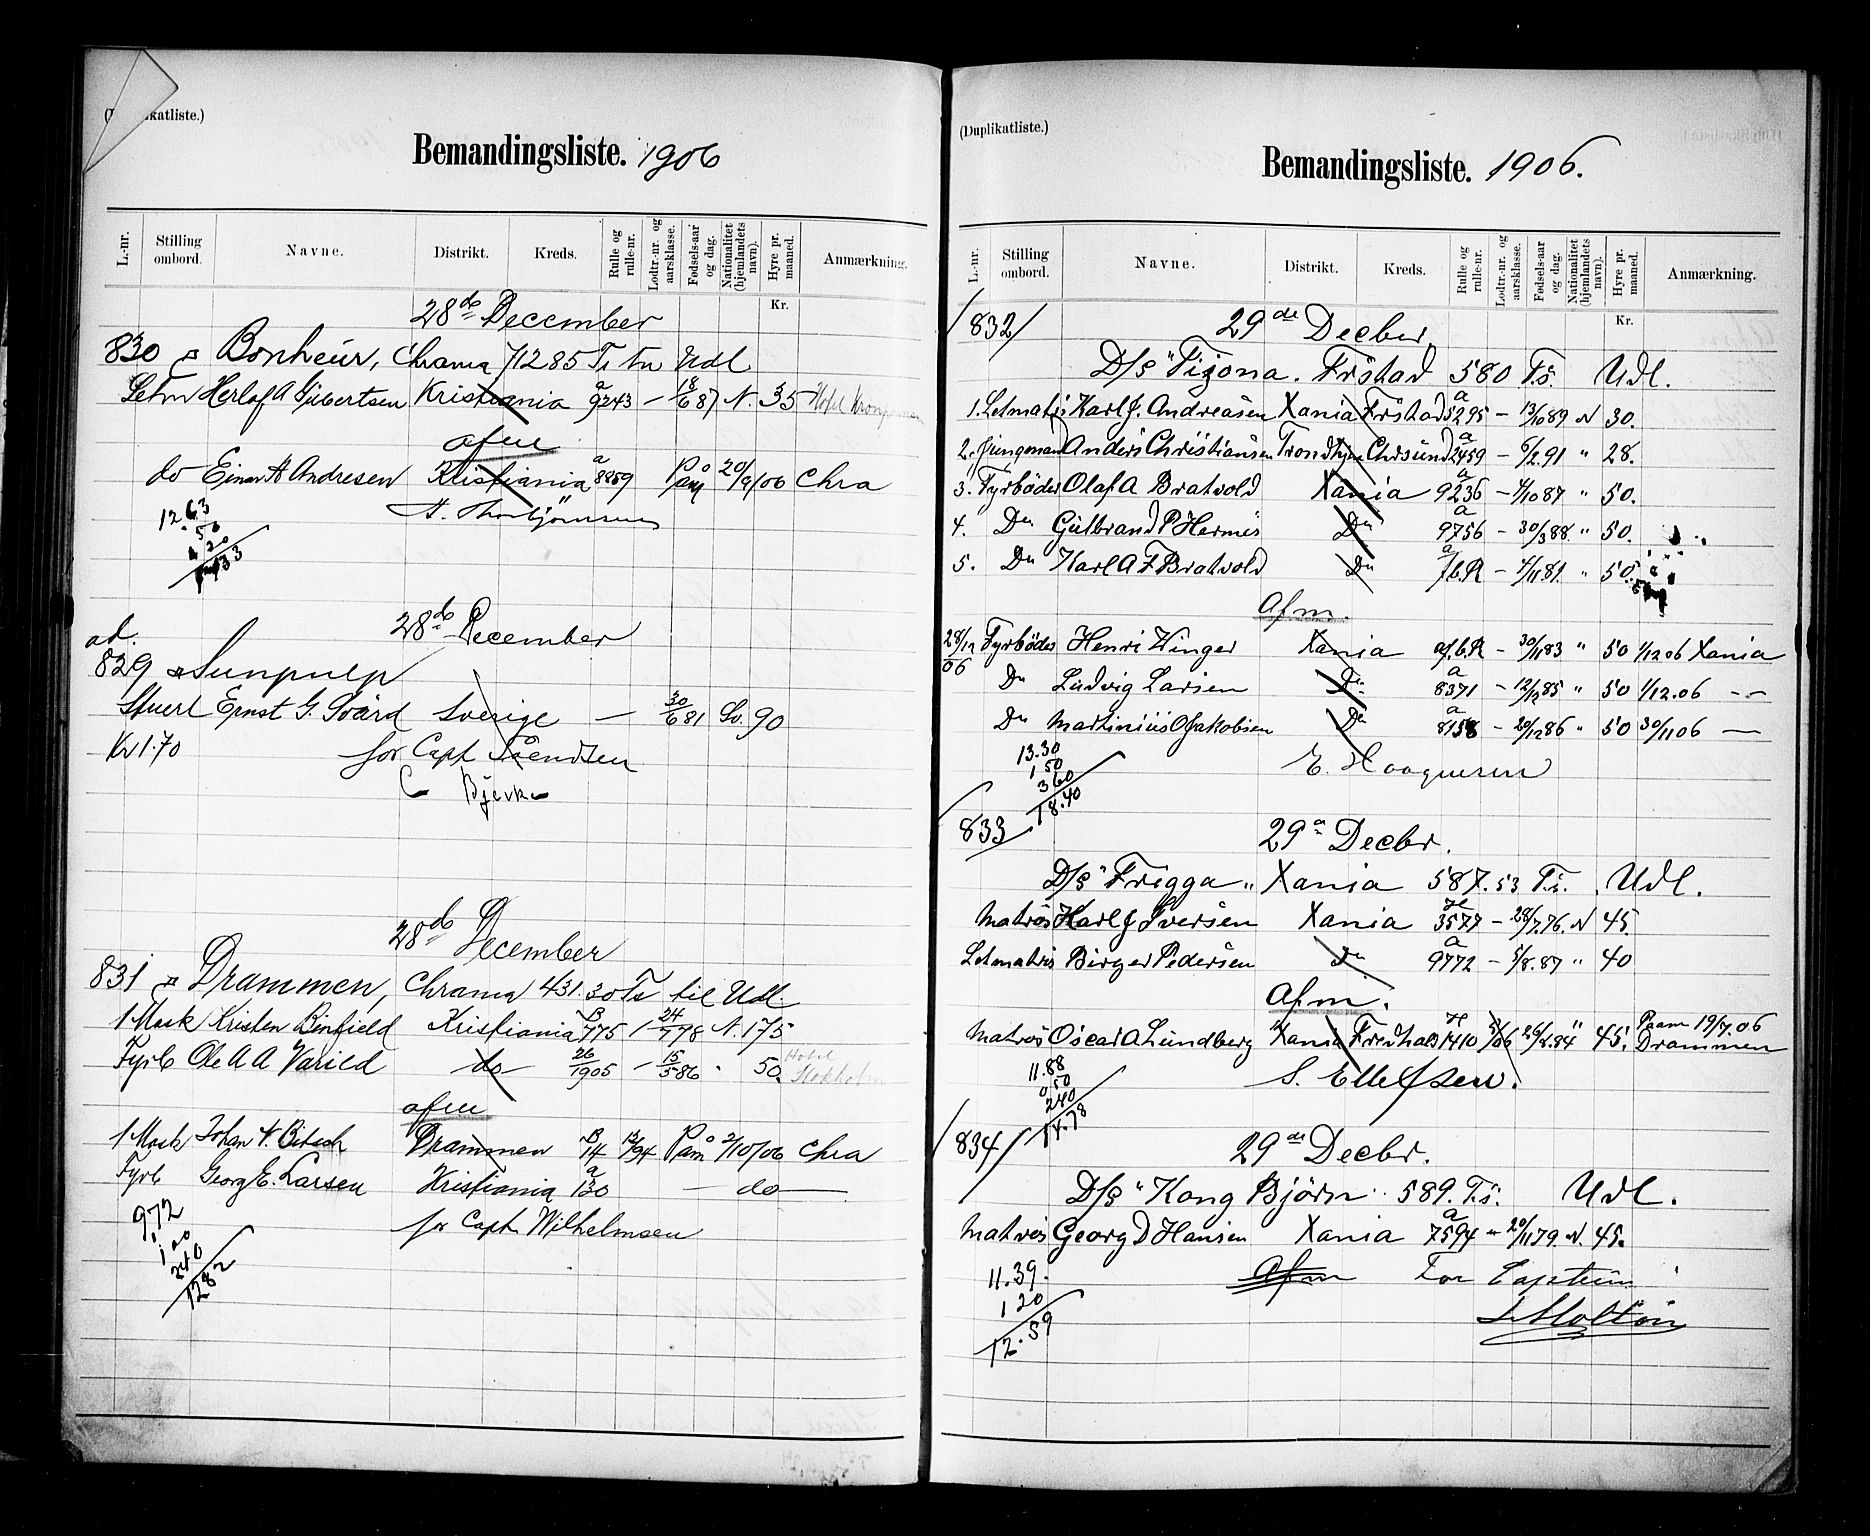 (Duplikatliste.)
Bemandingsliste. 1906
L.-nr. Stilling ombord. Navne. Distrikt. Kreds. Rulle og rulle-nr. Lodtr.-nr. og aarsklasse. Fødsels-aar og dag. Nationalitet (hjemlandets navn). Hyre pr. maaned. Anmærkning.
Kr.
28de December
830 Bonheur, Chrania 71285 Ts Udl
Letm Herlof A Gjibertsen Kristiania a 9243 — 18/6 87 N. 35 Hotel
afm
do Einar A Andresen Kristiania a 8859 Paam 20/9/06 Chra
12.63
50
1 20
28de December
ad.
829 Sunpulp
Stuert Ernst G. Svärd Sverige — 30/6 81 Sv. 90
Kr 1.70 for Capt Svendsen
C Bjerke
28de December
831 Drammen, Chrania 431.30 Ts til Udl.
1 Mask Kristen Binfield Kristiania B 775 / 24/7 78 N. 175
Fyrb Ole A A Varild do 26/1905 — 15/5 86 " 50. Hotel Stokholm
afm
1 Mask Johan Bitsch Drammen B 14 Paam 2/10/06 Chra
Fyrb Georg E. Larsen Kristiania a 130 — do —
972 for Capt. Wilhelmsen
1 00
240
1282
(Duplikatliste.)
Bemandingsliste. 1906.
L.-nr. Stilling ombord. Navne. Distrikt. Kreds. Rulle og rulle-nr. Lodtr.-nr. og aarsklasse. Fødsels-aar og dag. Nationalitet (hjemlandets navn). Hyre pr. maaned. Anmærkning.
Kr.
832 29de Decber
D/s "Tizona. Frstad 580 Ts. Udl.
1. Letmatrs Karl J. Andreasen Xania Frstad a 5295 — 13/10 89 N 30.
2. Jungmand Anders Christiansen Trondhjm Chrsund a 2459 — 6/2 91 " 28.
3. Fyrböder Olaf A Bratvold Xania a 9236 — 4/10 87 " 50.
4. Do Gulbrand P Hermis Do a 9756 — 30/3 88 " 50.
5. Do Karl A F Bratvold Do a f.b.R — 4/11 81 " 50.
Afm.
28/12 06 Fyrböder Henri Winger Xania af.b.R — 30/11 83 " 50 1/12 06 Xania
Do Ludvig Larsen Do a 8371 — 12/12 85 " 50 1/12.06 —
Do Martinius O Jakobsen Do a 8158 — 20/12 86 " 50 30/11 06 —
13.30
1 50
3 60
18.40
833 29de Decbr.
D/s "Frigga" Xania 587.53 Ts. Udl.
Matros Karl J Iversen Xania 3577 — 28/7.76. N 45.
Letmatrs Birger Pedersen Do a 9772 — 5/8.87 " 40
Afm.
Matros Oscar A Lundberg Xania Fredhald 1410 26/2.84 " 45. Paam 19/7.06 Drammen
11.88 S. Ellefsen.
0 50
240
14.78
834 29de Decbr.
D/s "Kong Björn" 589. Ts. Udl.
Matros Georg D Hansen Xania a 7594 — 20/11 79. N. 45.
11.39. Afm For Captein
1 20
12.59